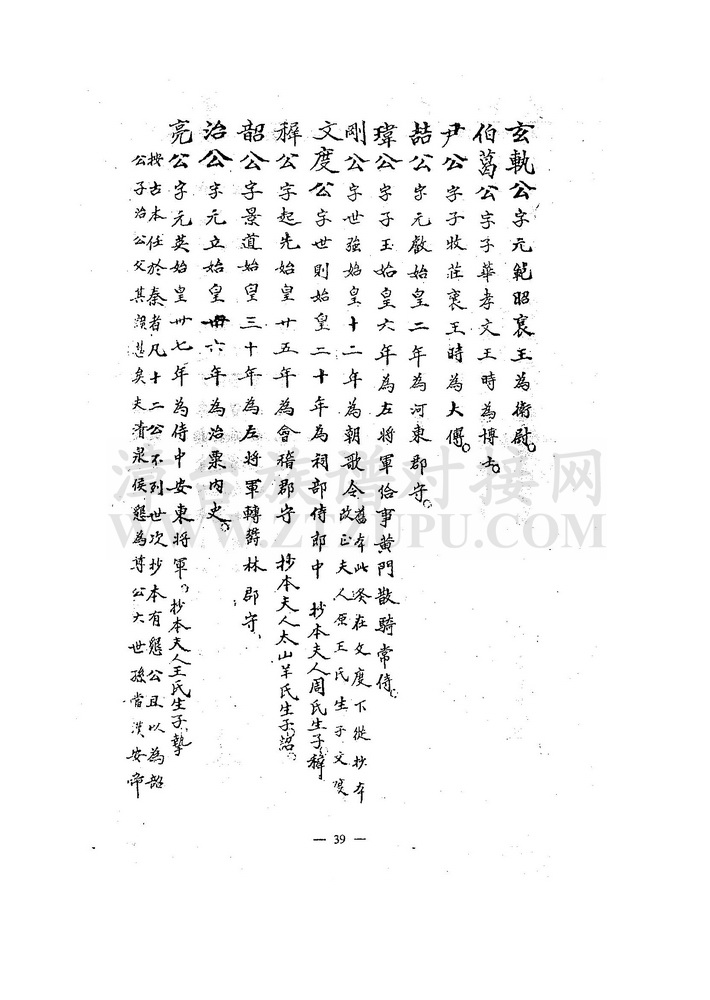 玄軌公字元範昭襄王為衛尉。
伯葛公字子華孝文王時為博士。
尹公字子牧莊襄王時為大傅。
喆公字元啟始皇二年為河東郡守。
瑋公字子玉始皇六年為左將軍給事黃門散騎常侍。
剛公字世強始皇十二年為朝歌令舊本此公在文度下從抄本
改正夫人原王氏生子文度
文度公字世則始皇二十年為祠部侍郎中 抄本夫人周氏生子稺
稺公字起先始皇廿五年為會稽郡守 抄本夫人太山羊氏生子韶
韶公字景道始皇三十年為左將軍轉欝林郡守
治公字元立始皇卅六年為治粟內史。
亮公字元英始皇卅七年為侍中安東將軍。抄本夫人王氏生子摯
按古本任於秦者凡十二公不列世次抄本有懇公且以為韶
公子治公父其誤甚矣夫清泉侯懇為尊公大世孫當漢安帝
— 39 —
泽台族谱对接网
WWW.ZTZUPU.COM